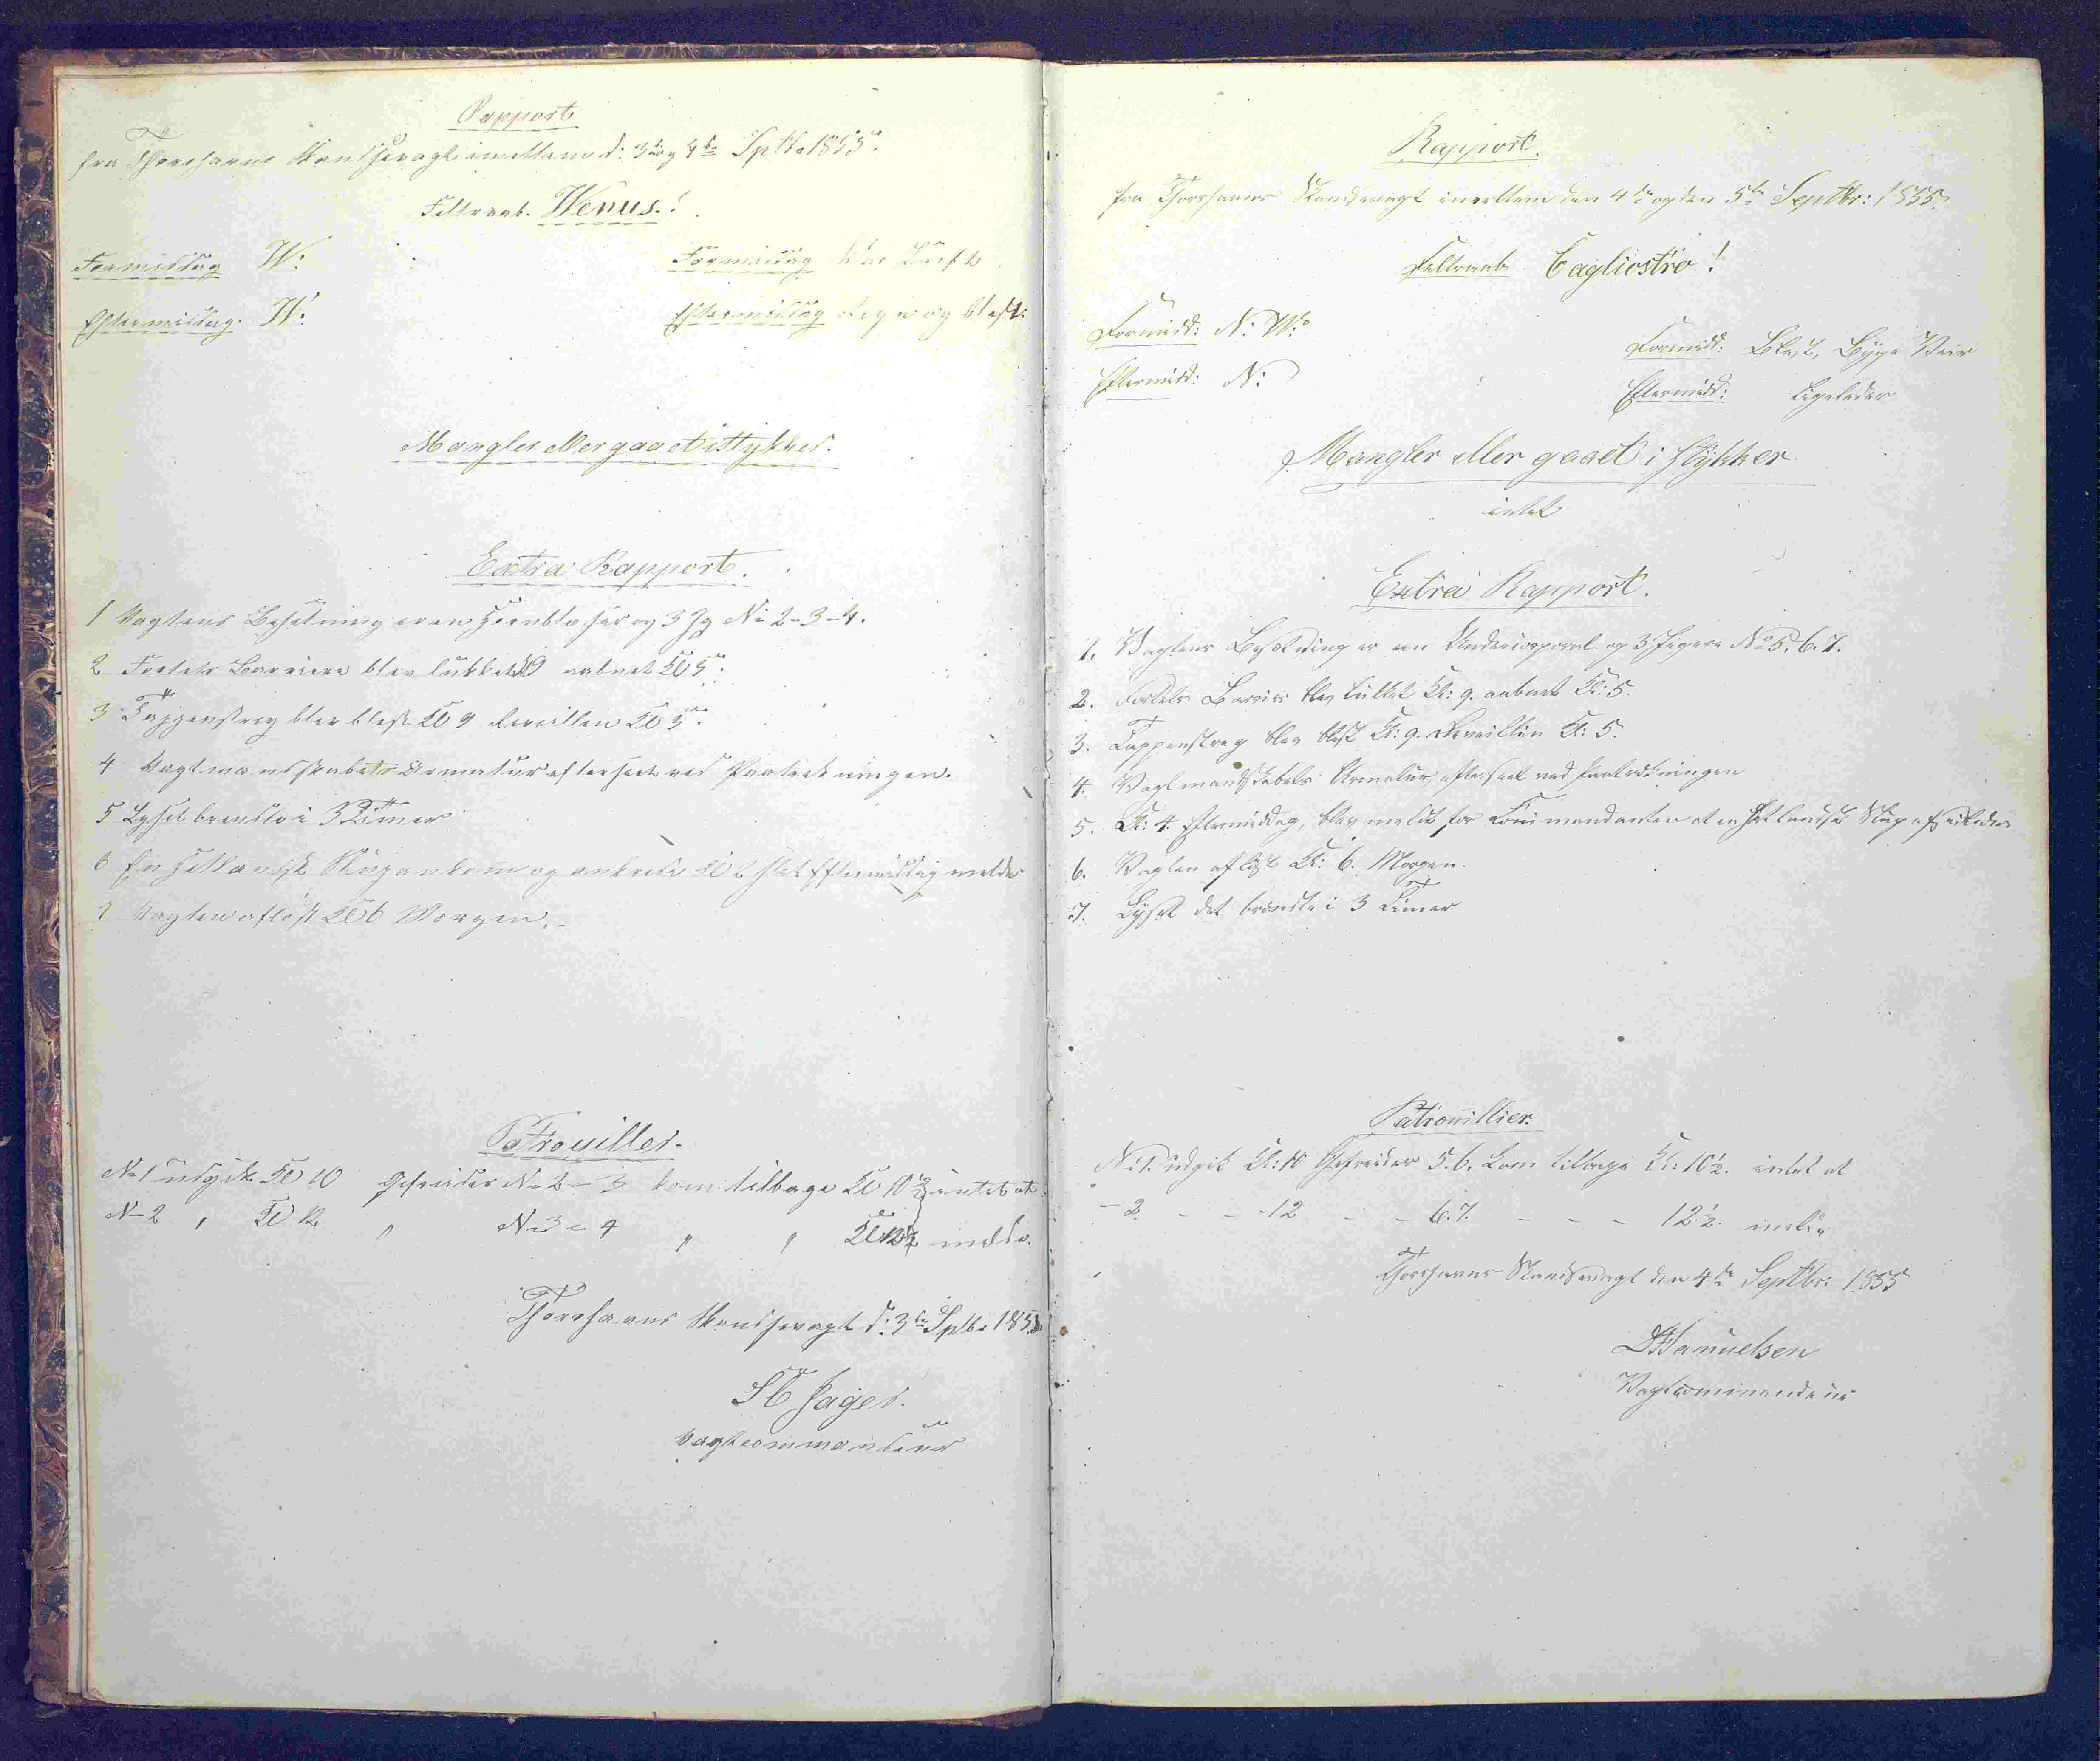 Rapport
fra Thorshavns Skandsevagt imellem d: 3die og 4de Sptbr 1855.
Feltraab. Wenus.!
Formiddag W:
Formiddag klar Luft
Eftermiddag. W:
Eftermiddag Regn og blæst:
Mangler eller gaaet istykker.
Extra Rapport.
1 Vagtens Besætning er en Hornblæser og 3 Jg No 2-3-4.
2 Fortets Barriere blev lukket Kl 9 aabnet Kl 5.
3 Tappenstreg blev blæst Kl 9 Reveillen Kl 5.
4 Vagtmandskabets Armatur efterseet ved Paatrækningen.
5 Lyset brendte i 3 Timer
6 En Hetlandsk Slup ankom og ankrede Kl 2 Slet Eftermiddag meldt
7 Vagten afløst Kl 6 Morgen.
Patrouiller.
No 1 udgik Kl 10 Gefreider No 2-3 kom tilbage Kl 10½ intet at
No 2 " Kl 12 " No 3-4 " " Kl 12½ melde.
Thorshavns Skandsevagt d: 3die Sptbr 1855.
Jager.
Vagtcommandeur
Rapport.
fra Thorshavns Skandsevagt imellem den 4de og den 5te Septbr: 1855.
Feltraab. Cagliostro!
Formidd: N: W:
Formidd: Blæst, Byge Veir
Eftermidd: N:
Eftermidd: Ligeledes
Mangler eller gaaet i stykker
intet
Extra Rapport.
1. Vagtens Besætning er en Undercorporal og 3 Jægere No 5. 6. 7.
2. Fortets Barriere blev lukket Kl: 9. aabnet Kl: 5.
3. Tappenstreg blev blæst Kl: 9. Reveillen Kl: 5.
4. Vagtmandskabets Armatur efterseet ved Paatrækningen
5. Kl: 4. Eftermiddag, blev meldt for Commandanten at en Hetlandsk Slup afseilede
6. Vagten afløst Kl: 6. Morgen.
7. Lyset det brændte i 3 Timer
Patrouillier.
No 1. udgik Kl: 10 Gefreider 5. 6. kom tilbage Kl: 10½. intet at
- 2 - - 12 - - 6. 7. - - - 12½. melde
Thorshavns Skandsevagt den 4de Septbr: 1855
Samuelsen
Vagtcommandeur